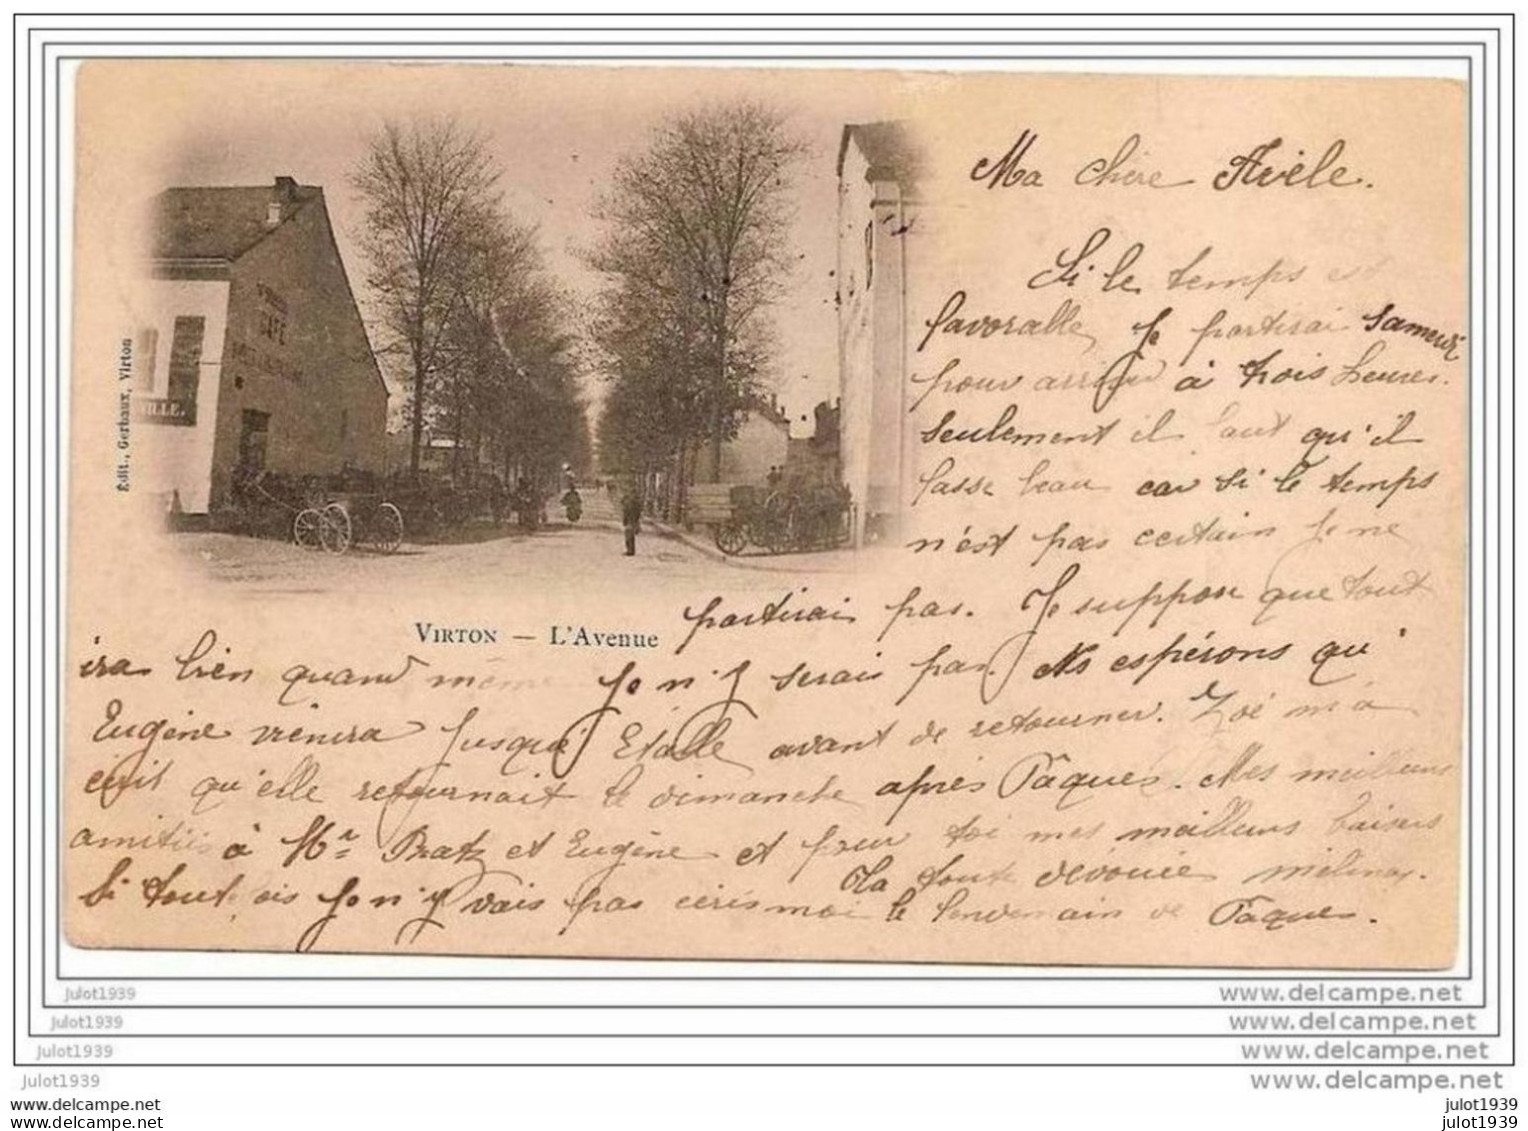 Ma chère
Si le temps est
favorable je partirai samedi
pour arriver à trois heures.
Seulement il faut qu'il
fasse beau car si le temps
n'est pas certain je ne
partirai pas. Je suppose que tout
ira bien quand même je n'y serais pas. Ns espérons qu'
Eugène viendra jusque Etalle avant de retourner. Zoé m'a
écrit qu'elle retournait le dimanche après Pâques. Mes meilleures
amitiés à Mr et Eugène et pour toi mes meilleurs baisers
Ta toute dévouée
Si toutefois je n'y vais pas écris moi le lendemain de Pâques.
Édit., Gerbaux, Virton
CAFÉ
VILLE.
VIRTON — L'Avenue
julot1939
www.delcampe.net
julot1939
www.delcampe.net
julot1939
www.delcampe.net
julot1939
www.delcampe.net
julot1939
julot1939
julot1939
julot1939